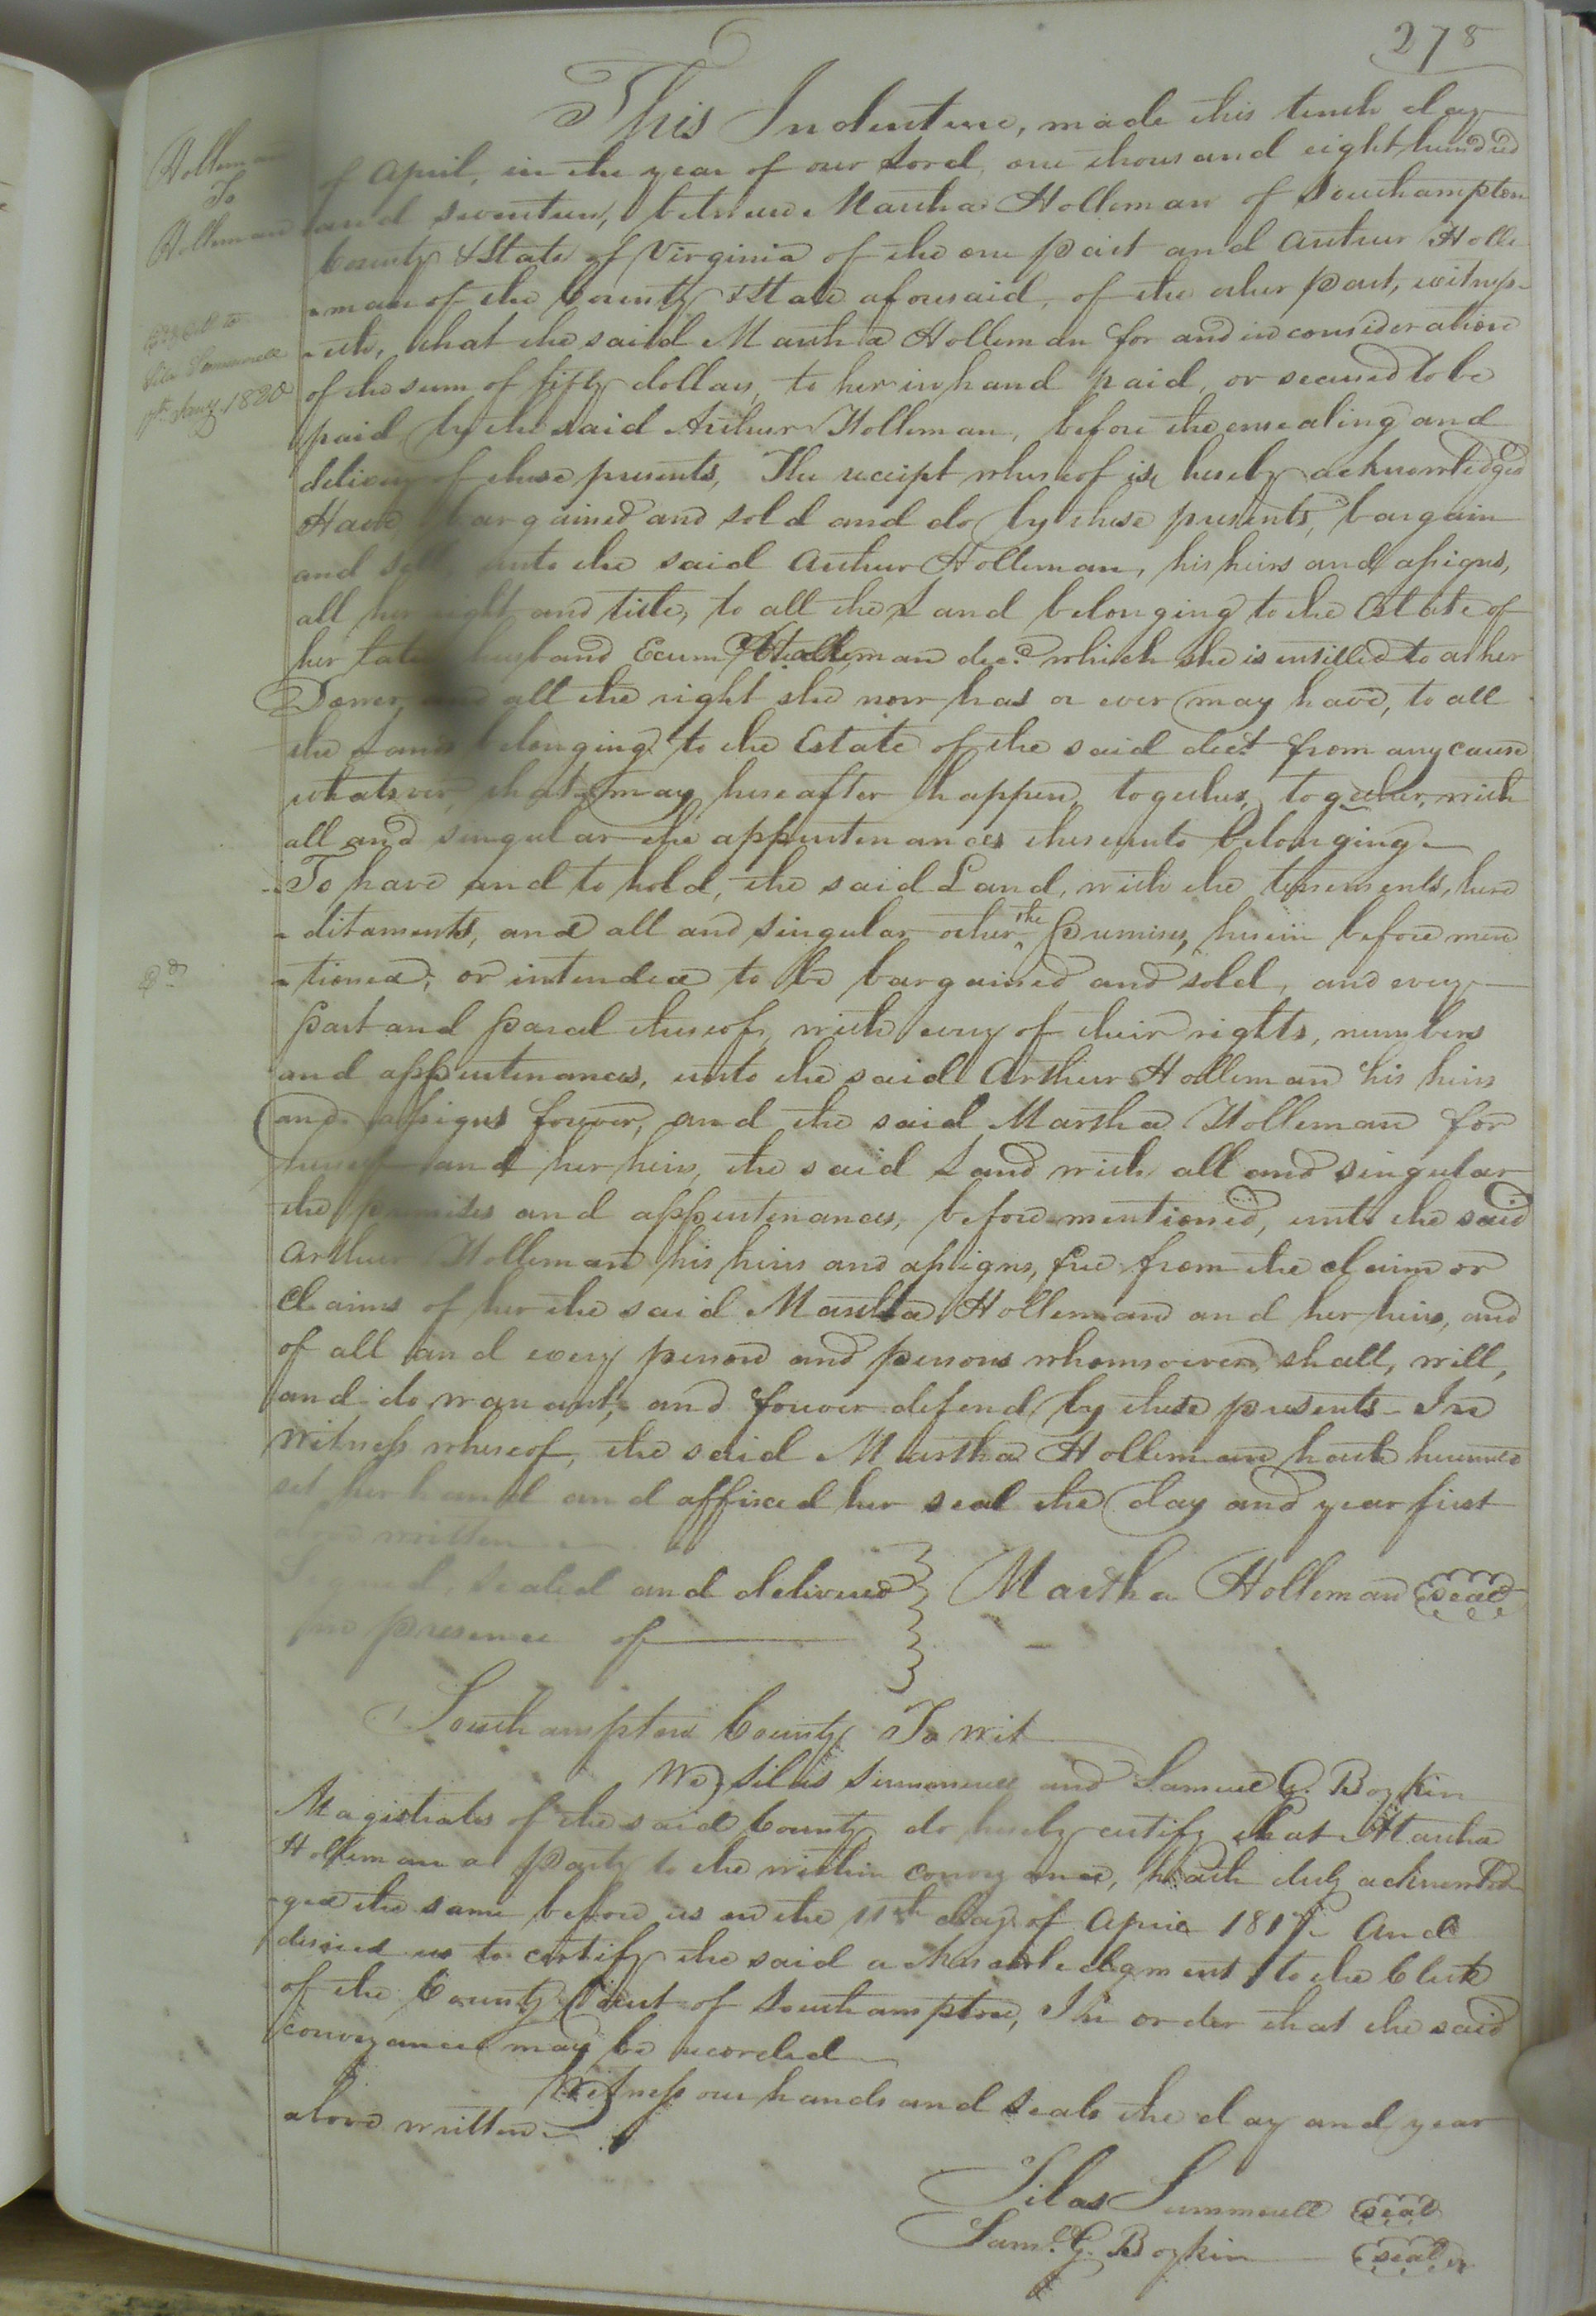 278
Holleman
To
Holleman
Exd & Dd to
Silas Summerell
17th Jany. 1820
Dd
This Indenture, made this tenth day
of April, in the year of our Lord, one thousand eight hundred
and seventeen, between Martha Holleman of Southampton
County & State of Virginia of the one part and Arthur Holle
-man of the County & State aforesaid, of the other part, witness-
-eth, that the said Martha Holleman for and in consideration
of the sum of fifty dollars, to her in hand paid, or secured to be
paid by the said Arthur Holleman, before the ensealing and
delivery of these presents, The receipt whereof is hereby acknowledged
Have bargained and sold and do by these presents, bargain
and sell unto the said Arthur Holleman, his heirs and assigns,
all her right and title, to all the Land belonging to the Estate of
her late husband Exum Holleman decd. which she is entitled to as her
Dower, and all the right she now has or ever may have, to all
the Lands belonging to the Estate of the said dect from any cause
whatever, that may hereafter happen, together, together, with
all and singular the appurtenances thereunto belonging
To have and to hold, the said Land, with the tenements, here
-ditaments, and all and singular other the premises, herein before men
-tioned, or intended to be bargained and sold, and every
part and parcal thereof, with every of their rights, numbers
and appurtenances, unto the said Arthur Holleman his heirs
and assigns forever, and the said Martha Holleman for
herself and her heirs, the said Land with all and singular
the premises and appurtenances, before mentioned, unto the said
Arthur Holleman his heirs and assigns, free from the claim or
Claims of her the said Martha Holleman and her heirs, and
of all and every person and persons whomsoever, shall, will,
and do warrant, and forever defend by these presents - In
Witness whereof, the said Martha Holleman hath hereunto
set her hand and affixed her seal the day and year first
above written
Signed, sealed and delivered
Martha Holleman seal
in presence of
Southampton County To wit
We, Silas Summerell and Samuel G. Boykin
Magistrates of the said County do hereby certify that Martha
Holleman a party to the within conveyance, hath duly acknowled
-ged the same before us on the 11th day of April 1817. And
desired us to certify the said acknowledgment to the Clerk
of the County Court of Southampton, In order that the said
conveyance may be recorded
Witness our hands and seals the day and year
above written
Silas Summerell seal
Saml. G. Boykin seal